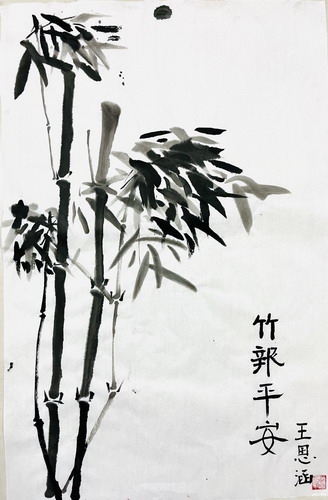 竹報平安
王思涵